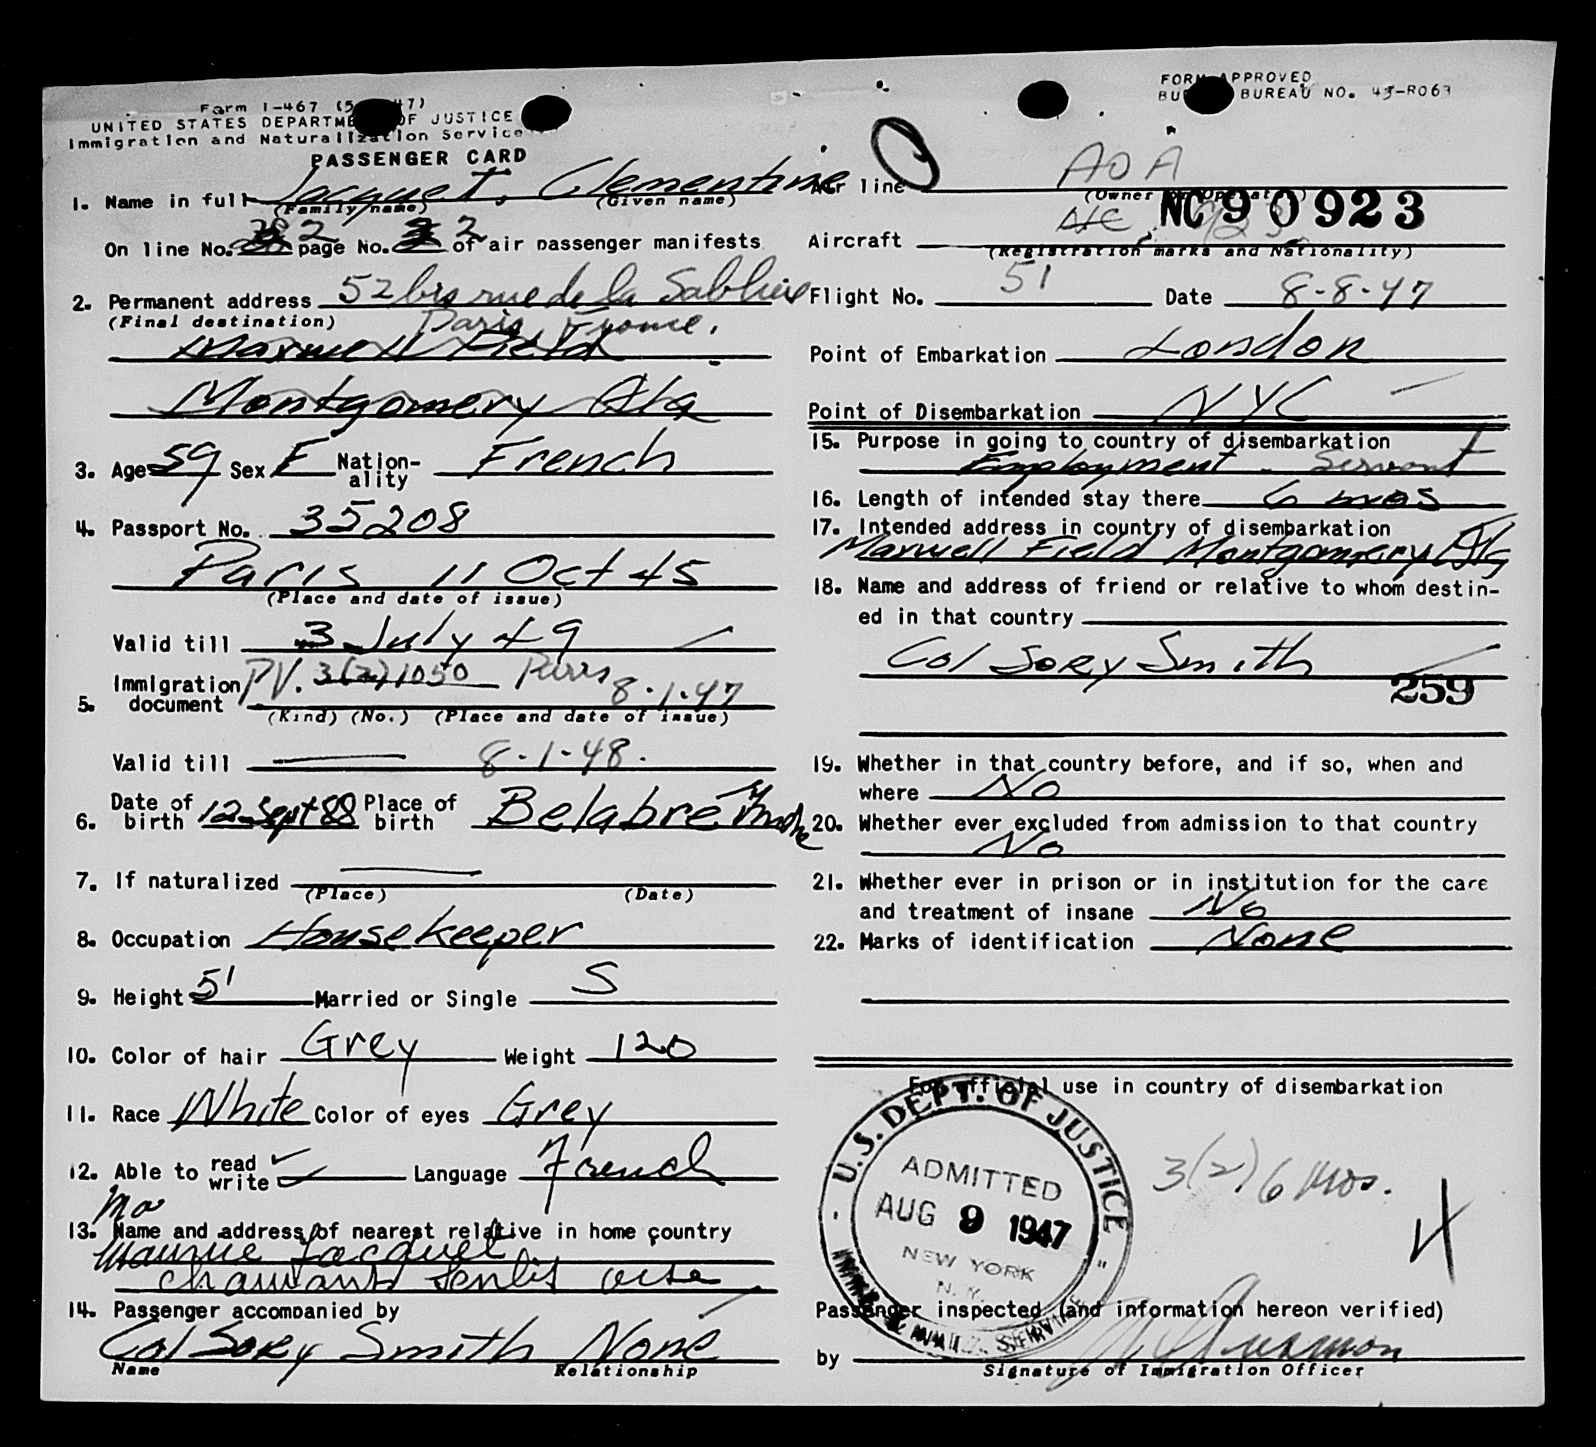 Form I-467
UNITED STATES DEPARTMENT OF JUSTICE
Immigration and Naturalization Service
PASSENGER CARD
FORM APPROVED
BUREAU NO. 43-R063
1. Name in full Jacquet, Clementine
(Family name) (Given name)
On line No. 2 page No. 2 of air passenger manifests
2. Permanent address 52 bis rue de la Sabliere
(Final destination) Paris France.
Maxwell Field
Montgomery Ala
3. Age 59 Sex F Nation-ality French
4. Passport No. 35208
Paris 11 Oct 45
(Place and date of issue)
Valid till 3 July 49
5. Immigration document PV. 3(2) 1050 Paris 8-1-47
(Kind) (No.) (Place and date of issue)
Valid till 8-1-48.
6. Date of birth 12 Sept 88 Place of birth Belabre
7. If naturalized
(Place) (Date)
8. Occupation Housekeeper
9. Height 5' Married or Single S
10. Color of hair Grey Weight 120
11. Race White Color of eyes Grey
12. Able to read ✓ write ✓ Language French
13. Name and address of nearest relative in home country
Maurice Jacquet
Chamant Senlis Oise
14. Passenger accompanied by
Col Sory Smith None
Name Relationship
Air line AOA
(Owner or Operator)
Aircraft NC 90923
(Registration marks and Nationality)
Flight No. 51 Date 8-8-47
Point of Embarkation London
Point of Disembarkation NYC
15. Purpose in going to country of disembarkation
Employment - Servant
16. Length of intended stay there 6 mos
17. Intended address in country of disembarkation
Maxwell Field Montgomery Ala
18. Name and address of friend or relative to whom destin-
ed in that country
Col Sory Smith
259
19. Whether in that country before, and if so, when and
where No
20. Whether ever excluded from admission to that country
No
21. Whether ever in prison or in institution for the care
and treatment of insane No
22. Marks of identification None
For official use in country of disembarkation
U.S. DEPT. OF JUSTICE
ADMITTED
AUG 9 1947
NEW YORK
N.Y.
3(2) 6 mos.
Passenger inspected (and information hereon verified)
by
Signature of Immigration Officer